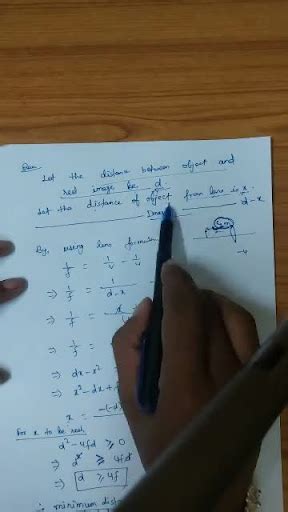 Let the distance between object and
real image be d
Let the distance of object from lens is x.
Image d-x
By, using lens formula
1/f = 1/v - 1/u
⇒ 1/f = 1/d-x
⇒ 1/f =
⇒ 1/f =
⇒ dx-x²
⇒ x²-dx+
x = -(-d)
For x to be real
d²-4fd ≥ 0
⇒ d² ≥ 4fd
⇒ d ≥ 4f
∴ minimum